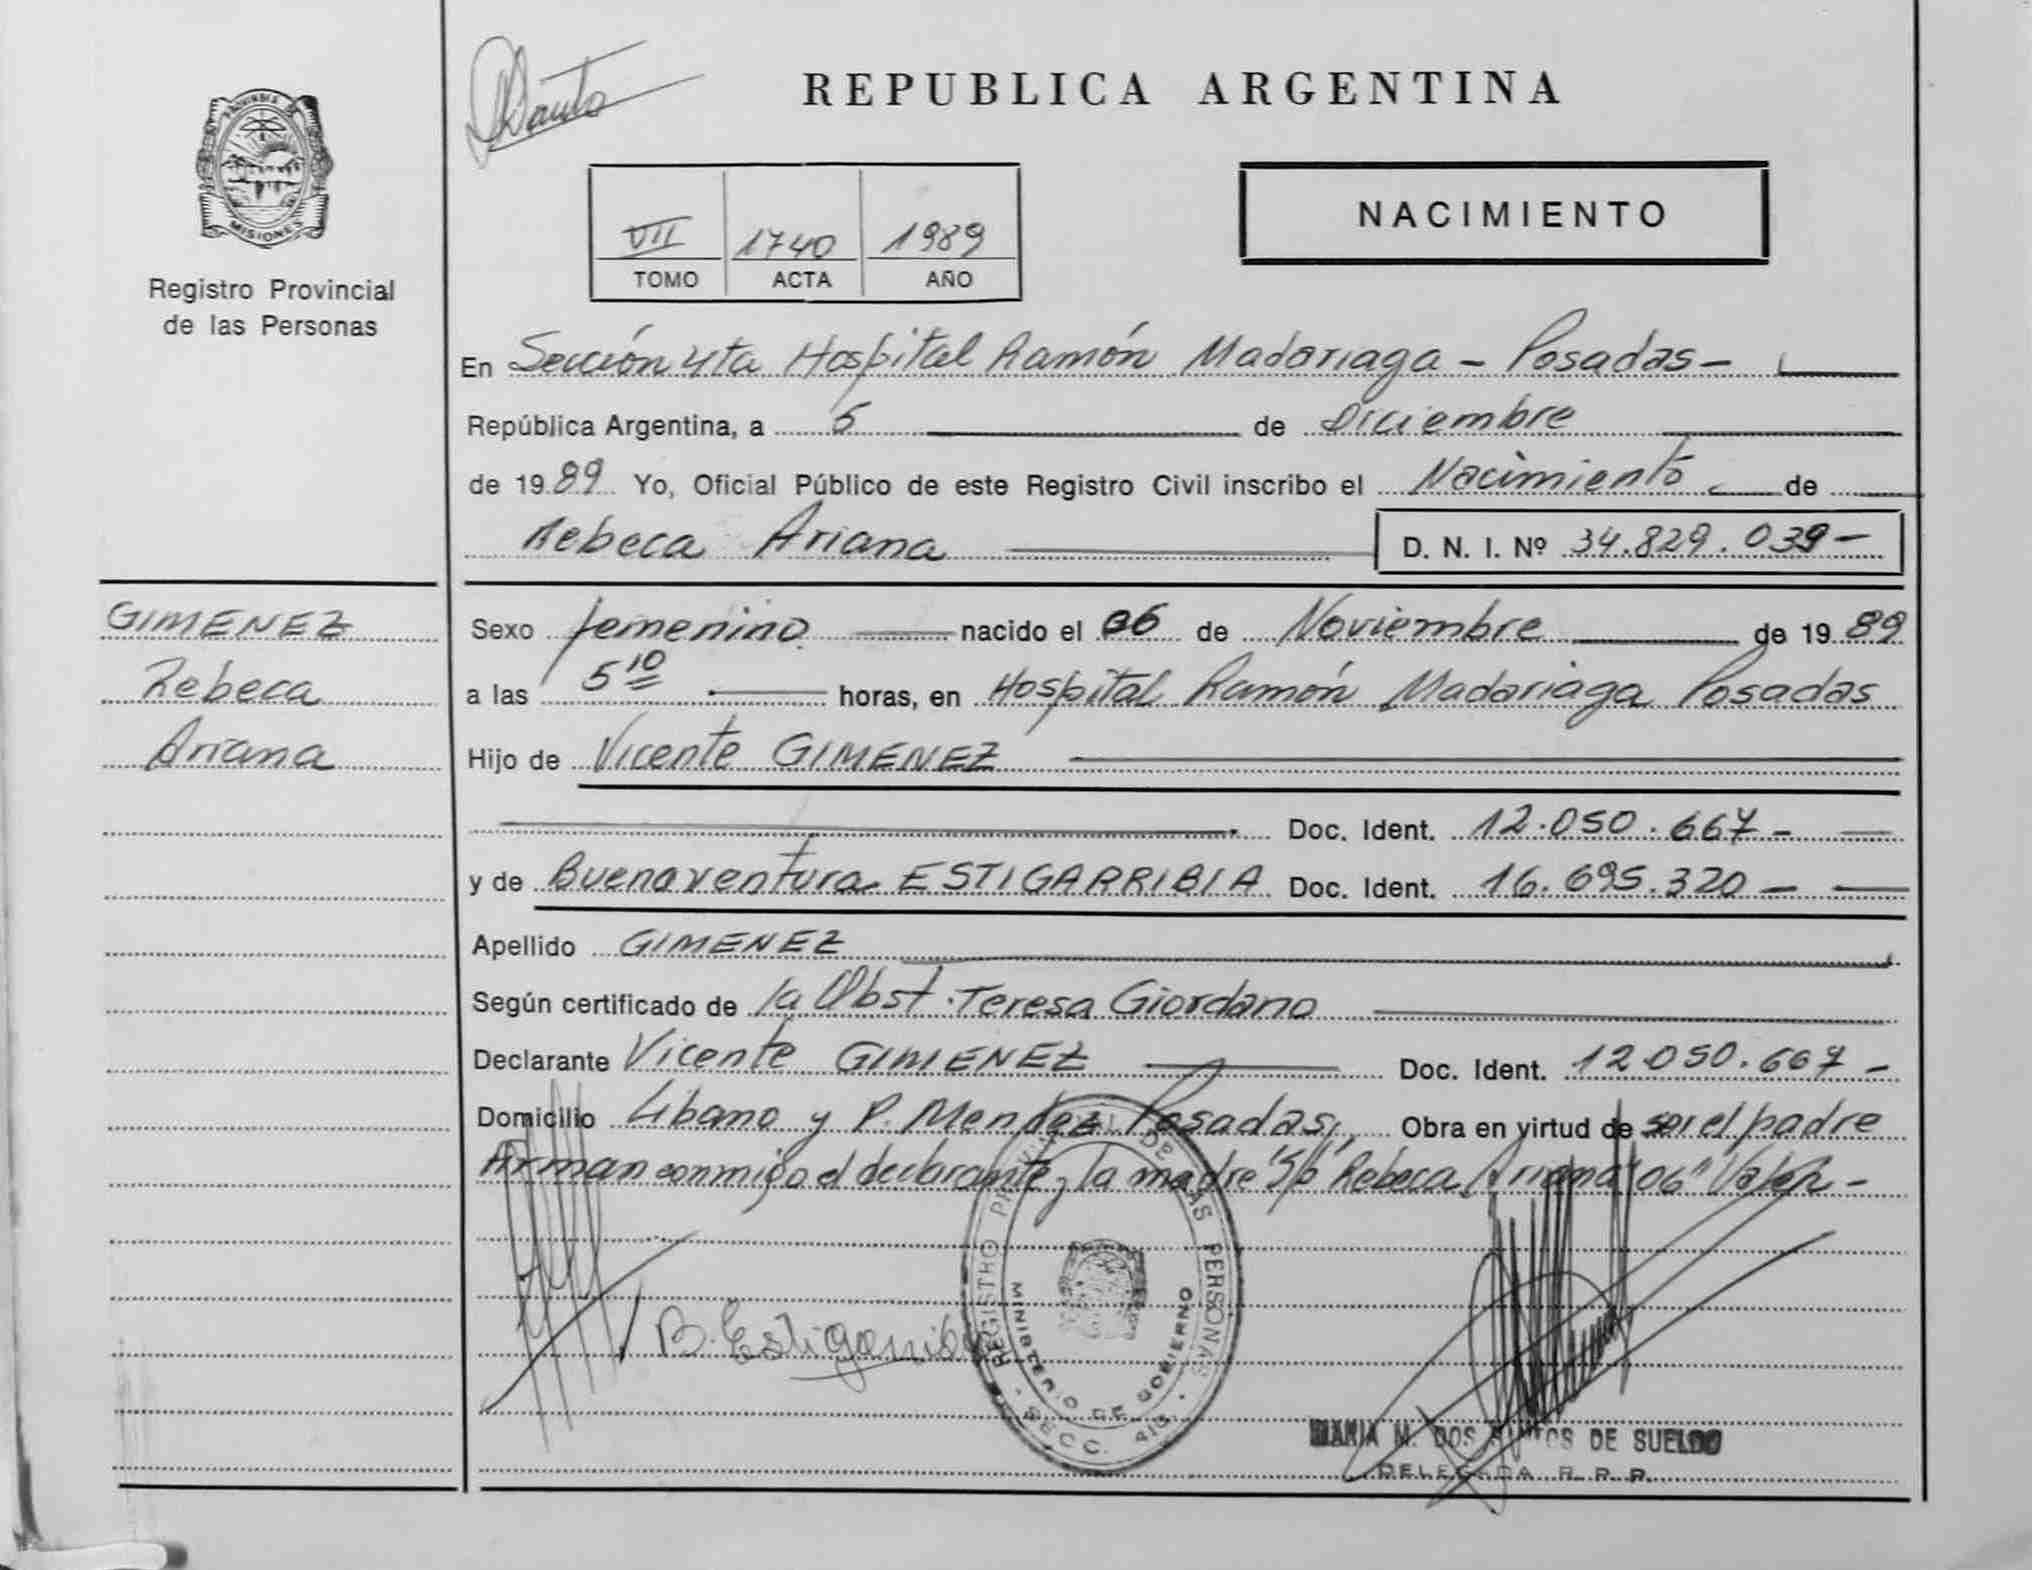 PROVINCIA DE
MISIONES
Registro Provincial
de las Personas
REPUBLICA ARGENTINA
NACIMIENTO
VII 1740 1989
TOMO ACTA AÑO
En Sección 4ta Hospital Ramón Madariaga - Posadas -
República Argentina, a 5 de Diciembre
de 1989 Yo, Oficial Público de este Registro Civil inscribo el Nacimiento de
Rebeca Ariana D. N. I. Nº 34.829.039-
GIMENEZ
Rebeca
Ariana
Sexo femenino nacido el 06 de Noviembre de 1989
a las 5 10 horas, en Hospital Ramón Madariaga Posadas
Hijo de Vicente GIMENEZ
Doc. Ident. 12.050.667-
y de Buenaventura ESTIGARRIBIA Doc. Ident. 16.695.320-
Apellido GIMENEZ
Según certificado de la Obst. Teresa Giordano
Declarante Vicente GIMENEZ Doc. Ident. 12.050.667-
Domicilio Libano y P. Mendez Posadas, Obra en virtud de ser el padre
Firman conmigo el declarante y la madre S/b "Rebeca Ariana" "06" Valen-
B. Estigarribia
REGISTRO PROVINCIAL DE LAS PERSONAS
MINISTERIO DE GOBIERNO
SECC. 4ta.
MARIA M. DOS SANTOS DE SUELDO
DELEGADA R. P. P.